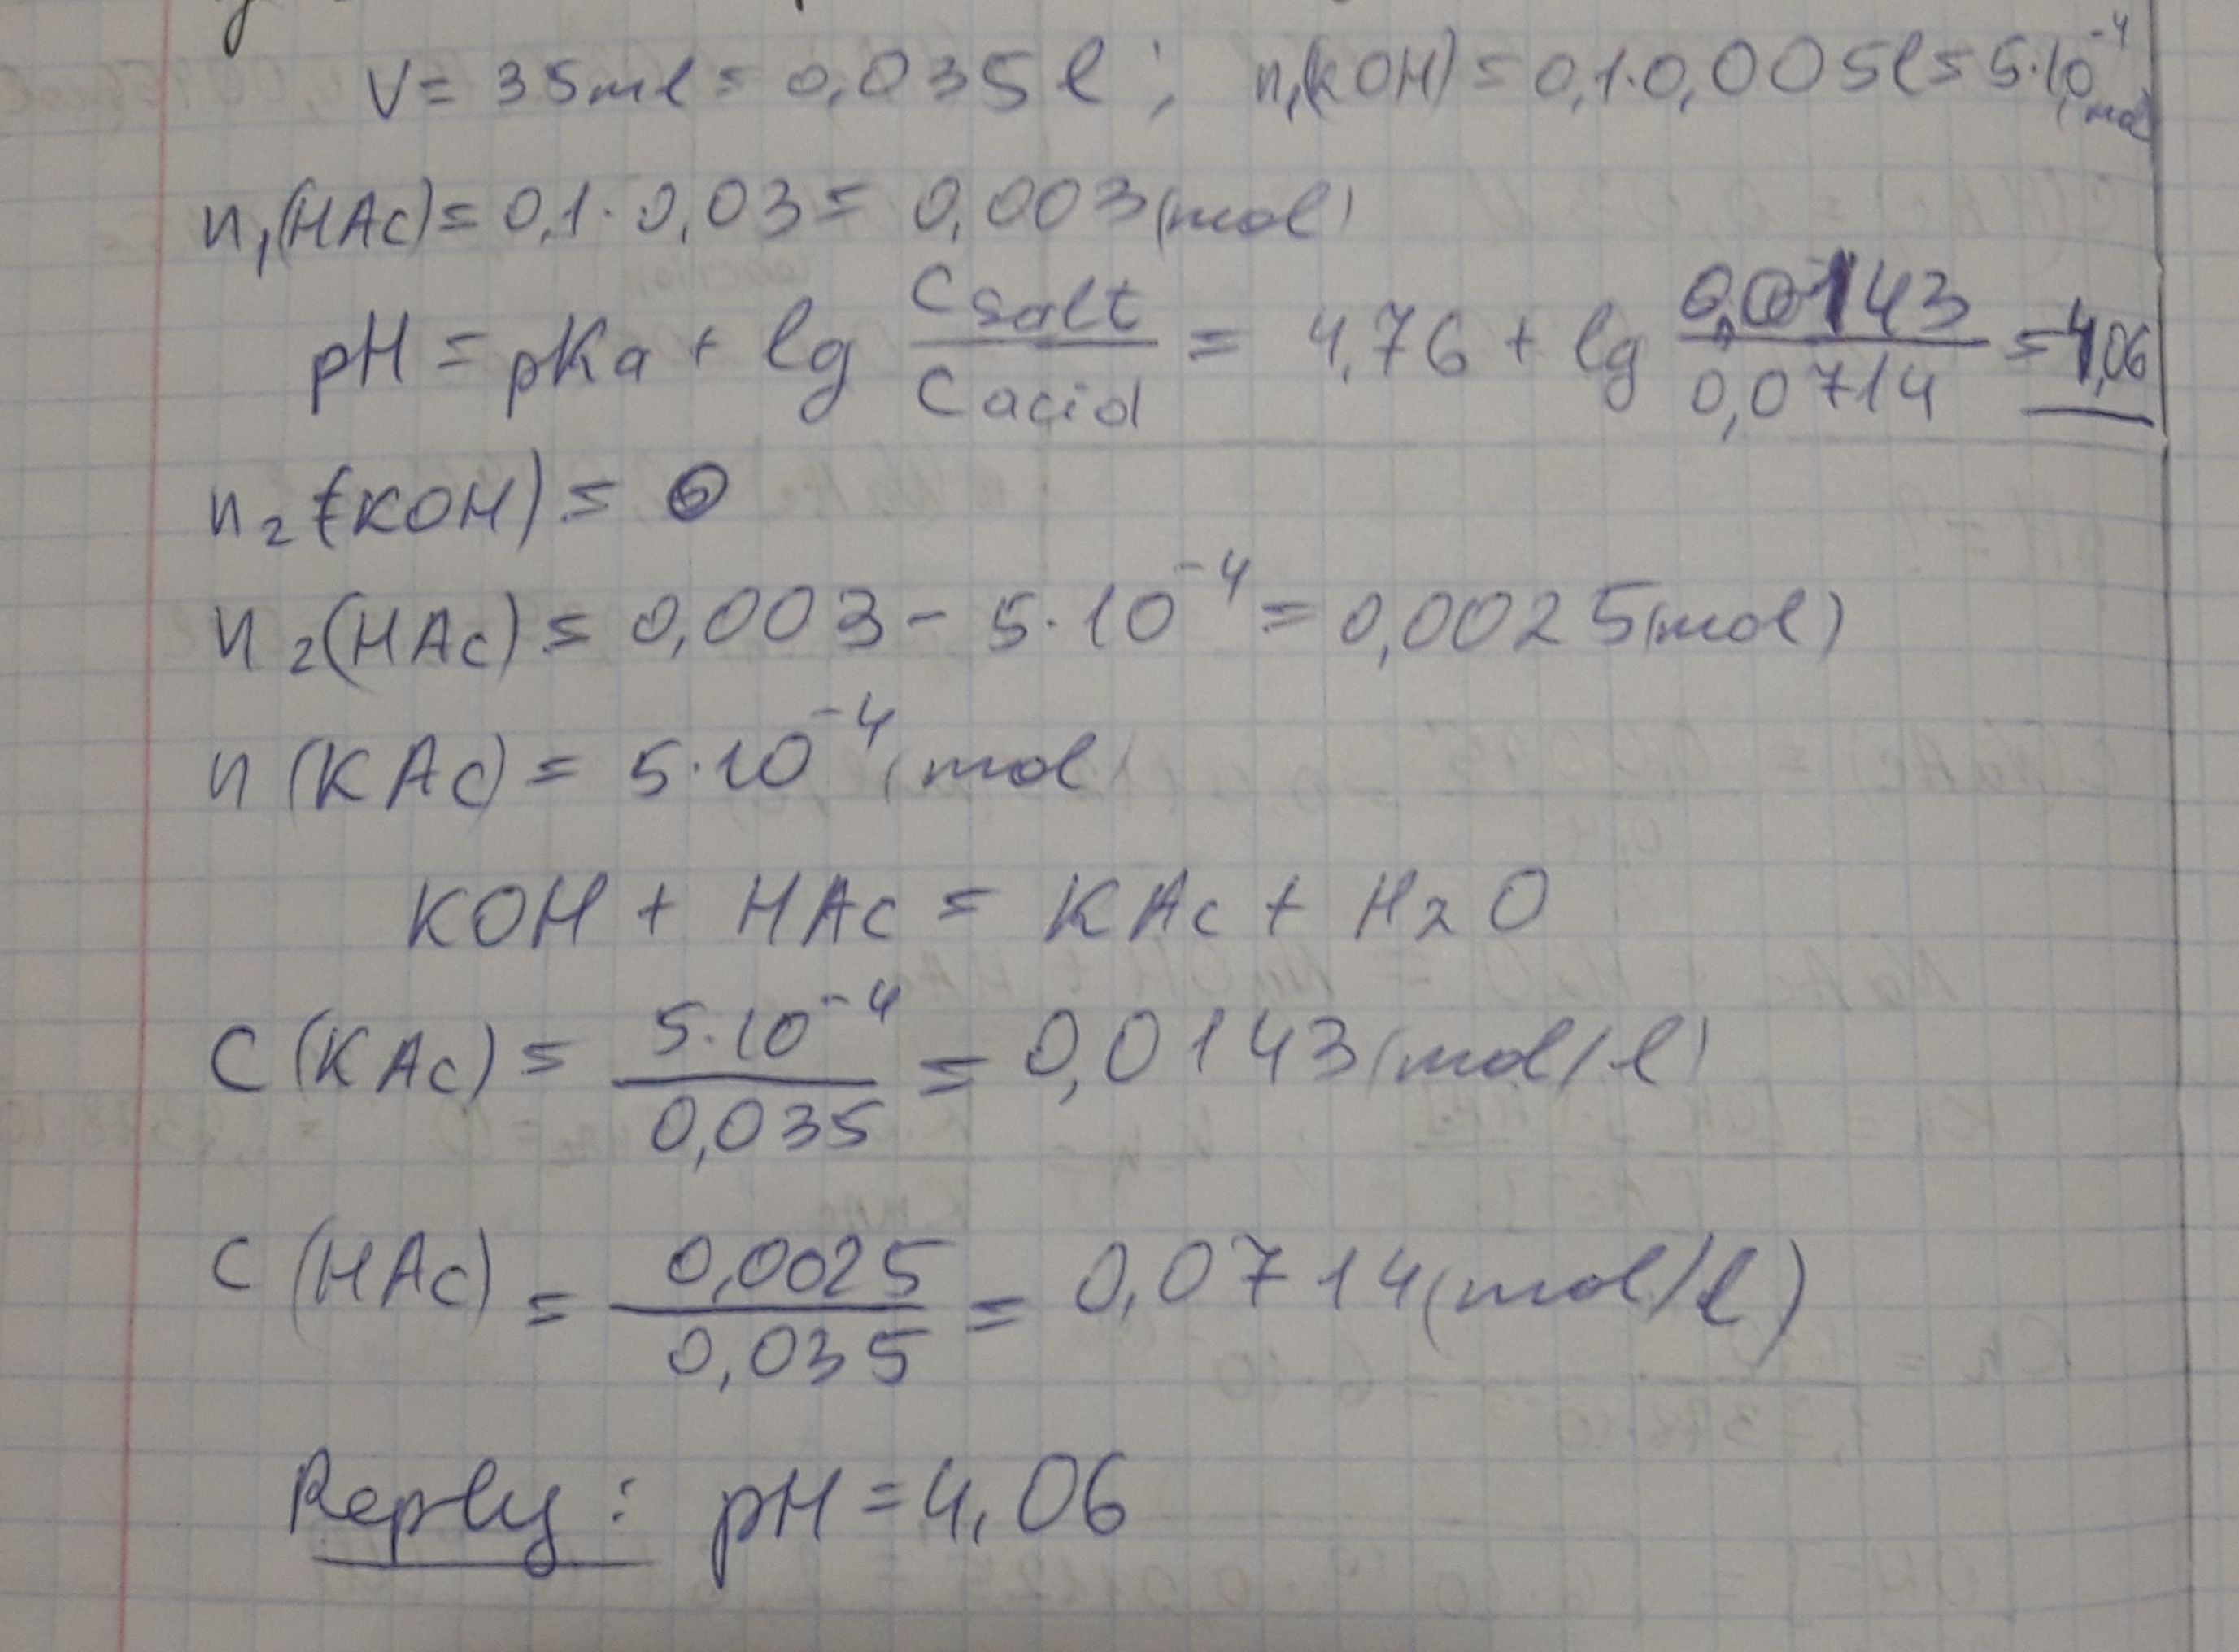 V = 35ml = 0,035 l ; n₁(KOH) = 0,1·0,005l = 5·10⁻⁴ (mol)
n₁(HAc) = 0,1·0,03 = 0,003 (mol)
pH = pKa + lg Csalt / Cacid = 4,76 + lg 0,0143 / 0,0714 = 4,06
n₂(KOH) = 0
n₂(HAc) = 0,003 - 5·10⁻⁴ = 0,0025 (mol)
n (KAc) = 5·10⁻⁴ (mol)
KOH + HAc = KAc + H₂O
C (KAc) = 5·10⁻⁴ / 0,035 = 0,0143 (mol/l)
C (HAc) = 0,0025 / 0,035 = 0,0714 (mol/l)
Reply : pH = 4,06